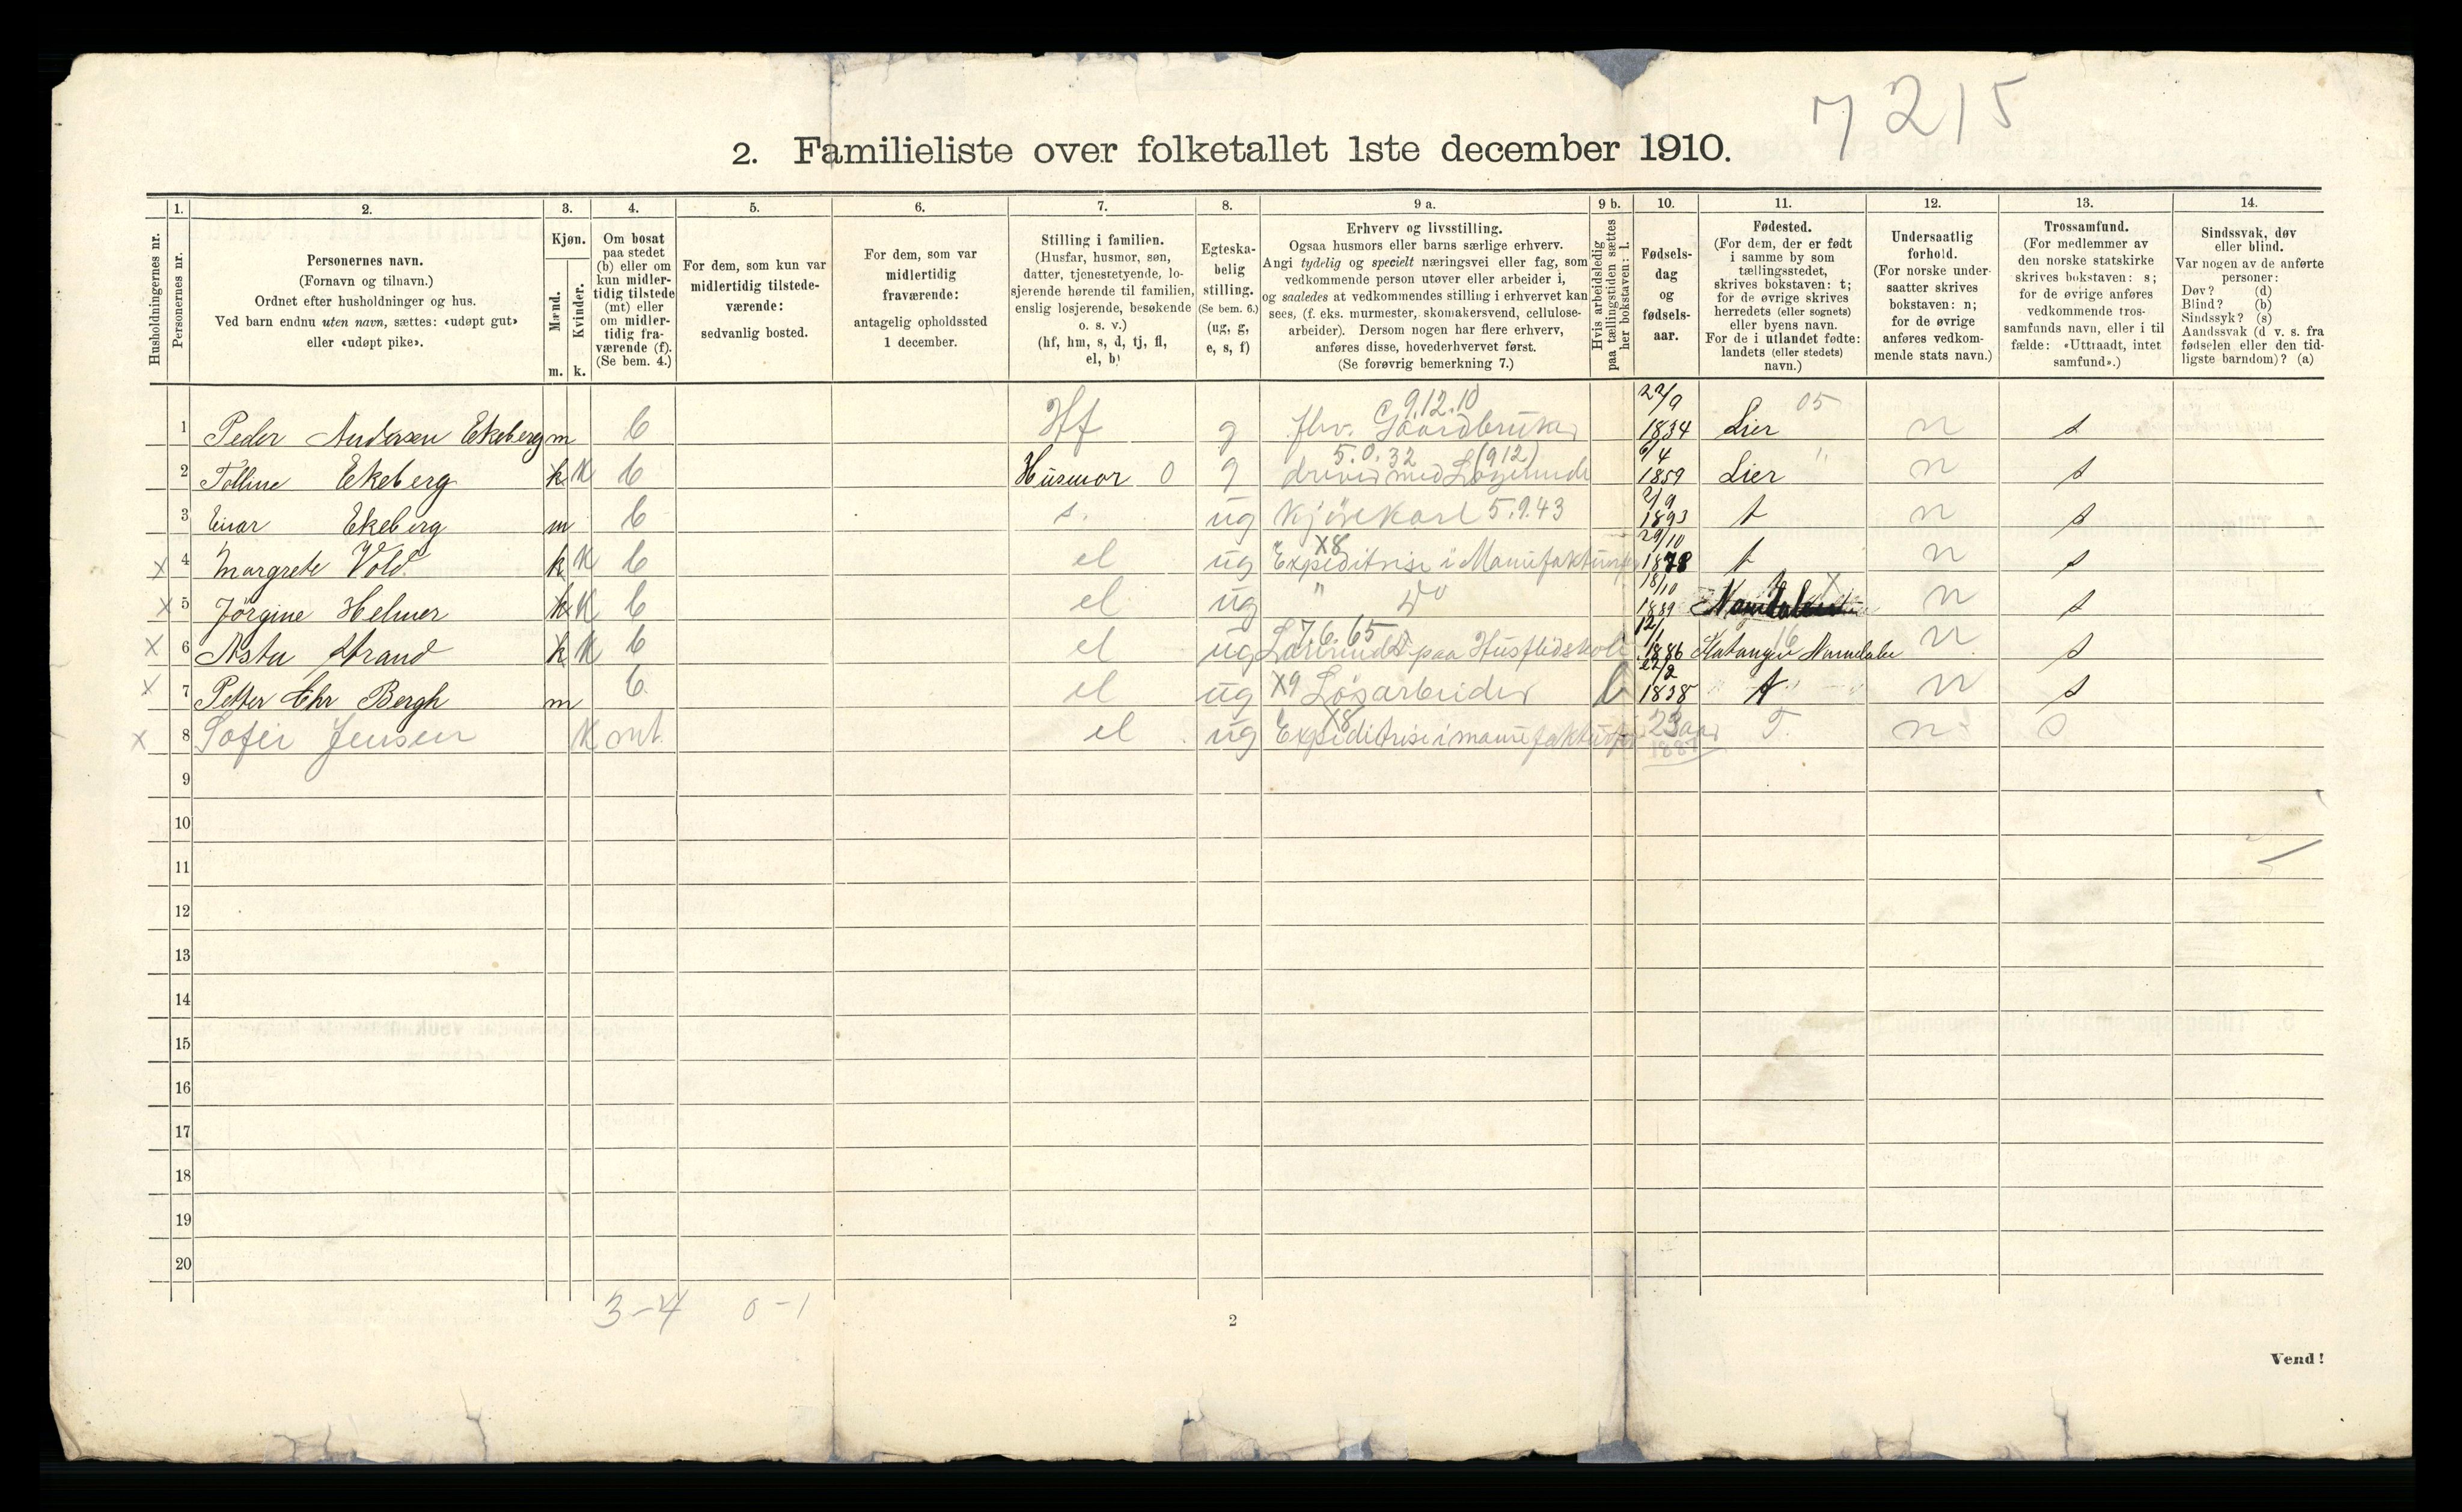 7215
2. Familieliste over folketallet 1ste december 1910.
1. 2. 3. 4. 5. 6. 7. 8. 9 a. 9 b. 10. 11. 12. 13. 14.
Husholdningernes nr.
Personernes nr.
Personernes navn.
(Fornavn og tilnavn.)
Ordnet efter husholdninger og hus.
Ved barn endnu uten navn, sættes: «udøpt gut»
eller «udøpt pike».
Kjøn.
Mænd.
Kvinder.
m. k.
Om bosat
paa stedet
(b) eller om
kun midler-
tidig tilstede
(mt) eller
om midler-
tidig fra-
værende (f).
(Se bem. 4.)
For dem, som kun var
midlertidig tilstede-
værende:
sedvanlig bosted.
For dem, som var
midlertidig
fraværende:
antagelig opholdssted
1 december.
Stilling i familien.
(Husfar, husmor, søn,
datter, tjenestetyende, lo-
sjerende hørende til familien,
enslig losjerende, besøkende
o. s. v.)
(hf, hm, s, d, tj, fl,
el, b)
Egteska-
belig
stilling.
(Se bem. 6.)
(ug, g,
e, s, f)
Erhverv og livsstilling.
Ogsaa husmors eller barns særlige erhverv.
Angi tydelig og specielt næringsvei eller fag, som
vedkommende person utøver eller arbeider i,
og saaledes at vedkommendes stilling i erhvervet kan
sees, (f. eks. murmester, skomakersvend, cellulose-
arbeider). Dersom nogen har flere erhverv,
anføres disse, hovederhvervet først.
(Se forøvrig bemerkning 7.)
Hvis arbeidsledig
paa tællingstiden sættes
her bokstaven: l.
Fødsels-
dag
og
fødsels-
aar.
Fødested.
(For dem, der er født
i samme by som
tællingsstedet,
skrives bokstaven: t;
for de øvrige skrives
herredets (eller sognets)
eller byens navn.
For de i utlandet fødte:
landets (eller stedets)
navn.)
Undersaatlig
forhold.
(For norske under-
saatter skrives
bokstaven: n;
for de øvrige
anføres vedkom-
mende stats navn.)
Trossamfund.
(For medlemmer av
den norske statskirke
skrives bokstaven: s;
for de øvrige anføres
vedkommende tros-
samfunds navn, eller i til
fælde: «Uttraadt, intet
samfund».)
Sindssvak, døv
eller blind.
Var nogen av de anførte
personer:
Døv? (d)
Blind? (b)
Sindssyk? (s)
Aandssvak (d v. s. fra
fødselen eller den tid-
ligste barndom)? (a)
9.12.10 22/9 05
1 Peder Andersen Ekeberg m b Hf g fhv. Gaardbruker 1834 Lier n s
5.0.32 (912) 6/4
2 Tolline Ekeberg k K b Husmor 0 g driver med Logerende 1859 Lier " n s
2/9
3 Einar Ekeberg m b s. ug Kjørekarl 5.9.43 1893 t n s
X8 29/10
x 4 Margrete Vold k K b el ug Expeditrise i Manufaktur 1878 t n s
18/10
x 5 Jörgine Helmer k K b el ug " Do 1889 t n s
76.65 12/1 16
x 6 Asta Strand k K b el ug Lærerinde paa Husflidskole 1886 Namdalen n s
22/2
x 7 Petter Chr Bergh m b el ug X9 Løsarbeider l 1838 t n s
X8
x 8 Sofie Jensen K mt. el ug Expeditrise i manufaktur 23 aar T. n s
1887
9
10
11
12
13
14
15
16
17
18
19
20
3-4 0-1
2
Vend!